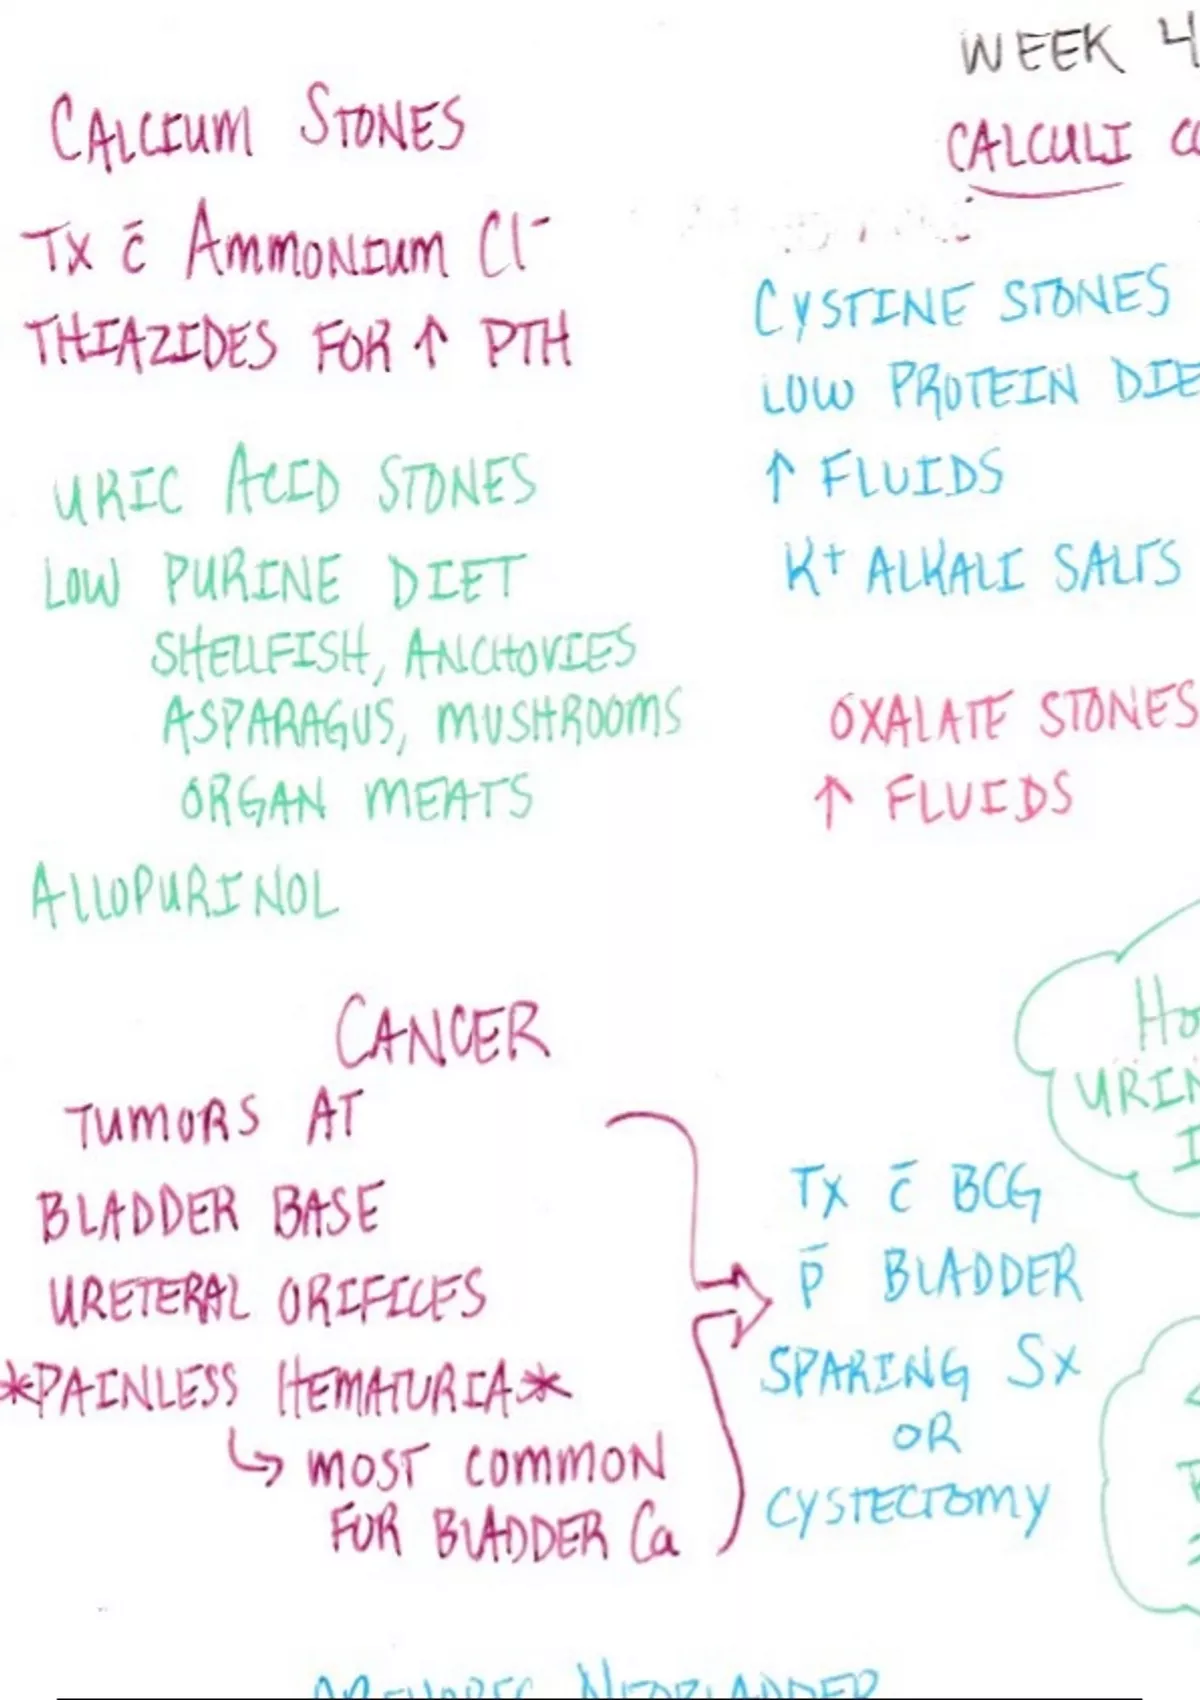 WEEK 4
CALCULI
CALCIUM STONES
TX c̄ AMMONIUM Cl⁻
THIAZIDES FOR ↑ PTH
URIC ACID STONES
LOW PURINE DIET
SHELLFISH, ANCHOVIES
ASPARAGUS, MUSHROOMS
ORGAN MEATS
ALLOPURINOL
CYSTINE STONES
LOW PROTEIN DIE
↑ FLUIDS
K+ ALKALI SALTS
OXALATE STONES
↑ FLUIDS
CANCER
TUMORS AT
BLADDER BASE
URETERAL ORIFICES
*PAINLESS HEMATURIA*
↳ MOST COMMON
FOR BLADDER Ca
TX c̄ BCG
p̄ BLADDER
SPARING SX
OR
CYSTECTOMY
HO
URIN
NEOBLADDER